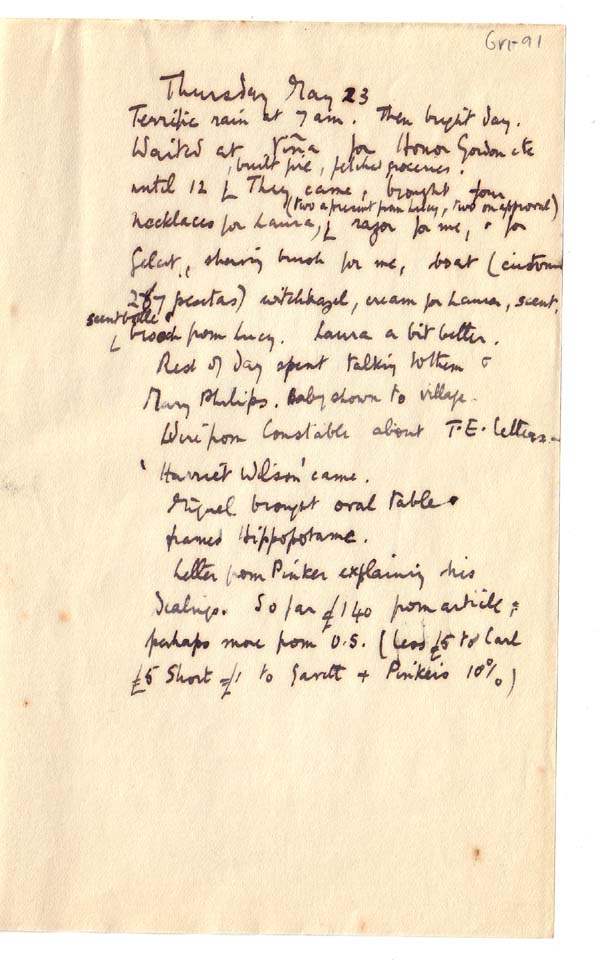 Gri-91
Thursday May 23
Terrific rain at 7 am. Then bright day.
Waited at Viña for Honor Gordon etc
, built fire, fetched groceries.
until 12 They came, brought four
(two a present from Lucy, two on approval)
necklaces for Laura, razor for me, & for
Gelat, shaving brush for me, boat (customs
267 pesetas) witchhazel, cream for Laura, scent,
scent bottle &
brooch from Lucy. Laura a bit better.
Rest of day spent talking to them &
Mary Philips. Baby shown to village.
Wire from Constable about T.E. Letters.-
'Harriet Wilson' came.
Miguel brought oval table &
frames Hippopotame.
Letter from Pinker explaining his
dealings. So far £140 from article;
perhaps more from U.S. (less £5 to Carl
£5 Short £1 to + Pinker's 10%)